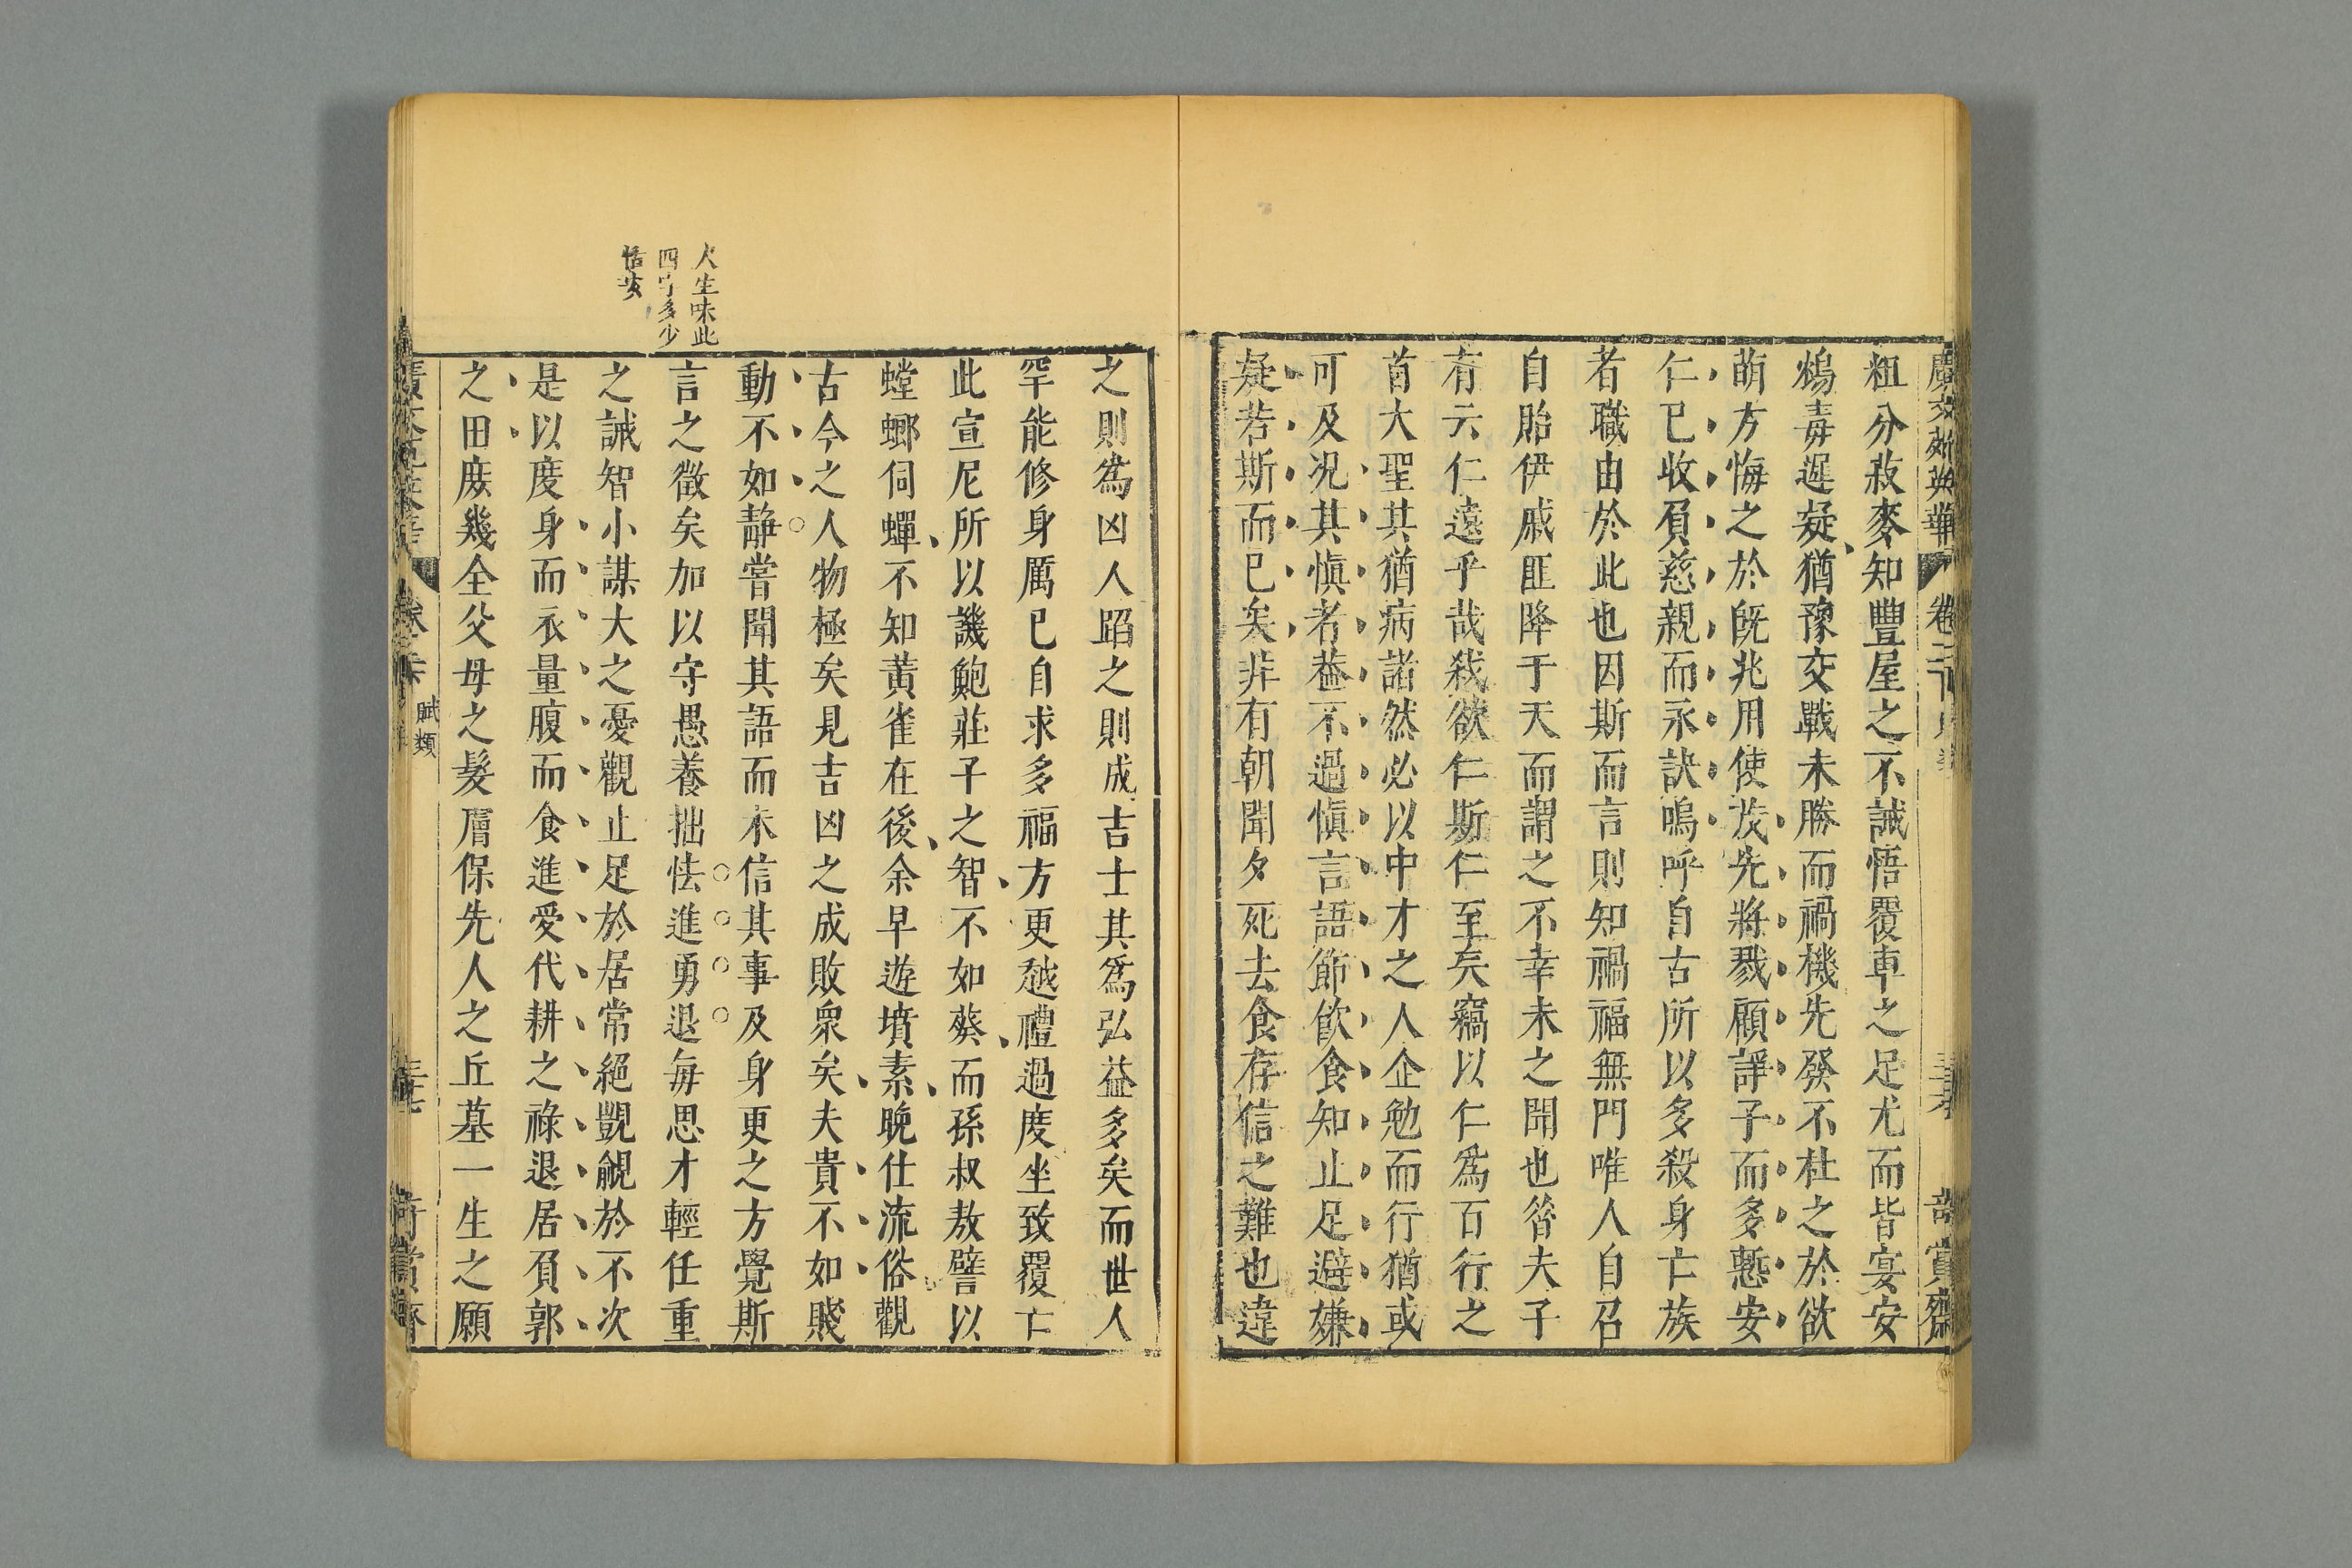 廣文苑英華 卷二 賞齋
粗分菽麥知豐屋之不誡悟覆車之足尤而皆宴安
鴆毒遲疑猶豫交戰未勝而禍機先發不杜之於欲
萌方悔之於旣兆用使茂先將戮顧諍子而多慙安
仁已收負慈親而永訣嗚呼自古所以多殺身亡族
者職由於此也因斯而言則知禍福無門唯人自召
自貽伊戚匪降于天而謂之不幸未之聞也昝夫子
有云仁遠乎哉我欲仁斯仁至矣竊以仁爲百行之
首大聖其猶病諸然必以中才之人企勉而行猶或
可及況其愼者葢不過愼言語節飲食知止足避嫌
疑若斯而已矣非有朝聞夕死去食存信之難也違
之則爲凶人蹈之則成吉士其爲弘益多矣而世人
罕能修身厲已自求多福方更越禮過度坐致覆亡
此宣尼所以譏鮑莊子之智不如葵而孫叔敖譬以
螳螂伺蟬不知黃雀在後余早遊墳素晚仕流俗觀
古今之人物極矣見吉凶之成敗衆矣夫貴不如賤
動不如靜嘗聞其語而未信其事及身更之方覺斯
言之徵矣加以守愚養拙怯進勇退每思才輕任重
之誡智小謀大之憂觀止足於居常絕覬覦於不次
是以度身而衣量腹而食進愛代耕之祿退居負郭
之田庶幾全父母之髮膚保先人之丘墓一生之願
人生味此
四字多少
恬妥
賦類